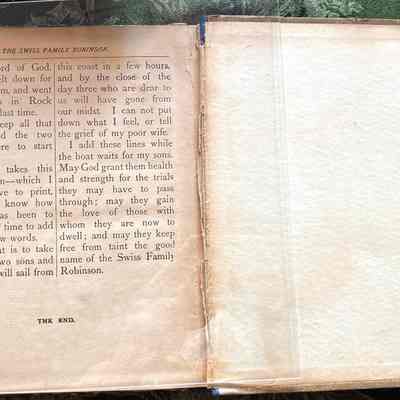 THE SWISS FAMILY ROBINSON.
ord of God.
elt down for
m, and went
s in Rock
last time.
eep all that
d the two
re to start
takes this
n—which I
ve to print,
know how
as been to
time to add
w words.
t is to take
wo sons and
will sail from
this coast in a few hours,
and by the close of the
day three who are dear to
us will have gone from
our midst. I can not put
down what I feel, or tell
the grief of my poor wife.
I add these lines while
the boat waits for my sons.
May God grant them health
and strength for the trials
they may have to pass
through; may they gain
the love of those with
whom they are now to
dwell; and may they keep
free from taint the good
name of the Swiss Family
Robinson.
THE END.